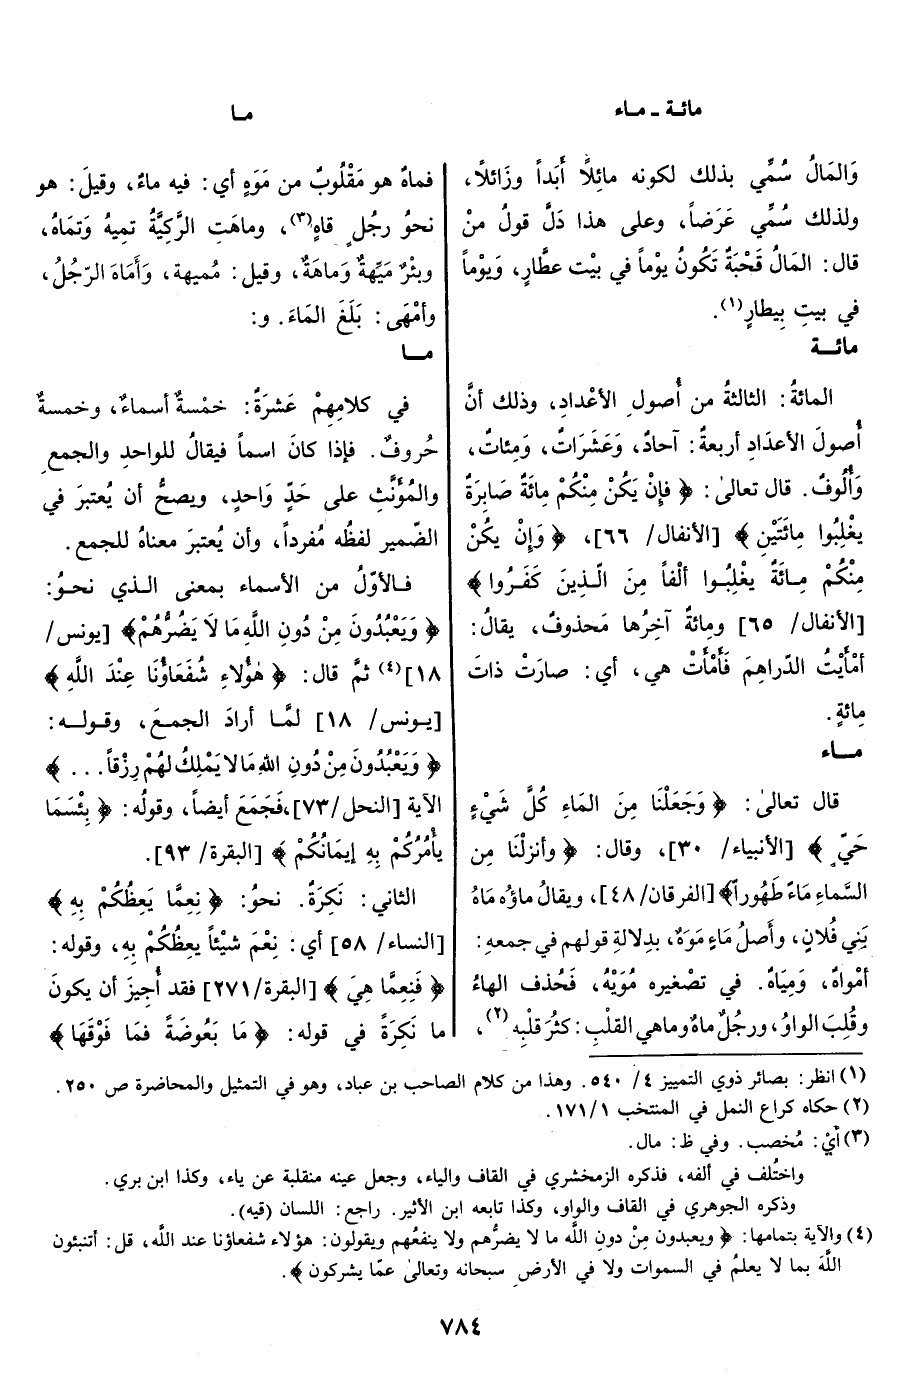 مائة ـ ماء
ما
وَالمَالُ سُمِّي بذلك لكونه مائِلًا أَبَداً وزَائلًا،
ولذلك سُمِّي عَرَضاً، وعلى هذا دَلَّ قولُ منْ
قال: المَالُ قَحْبَةٌ تَكُونُ يوْماً في بيْت عطَّارٍ، وَيَوْماً
في بيتِ بِيطارٍ(١).
مائـة
المائةُ: الثالثةُ من أُصولِ الأعْدادِ، وذلك أنَّ
أُصولَ الأعدَادِ أربعةٌ: آحادٌ، وَعَشَرَاتٌ، وَمِئاتٌ،
وَأُلُوفٌ. قال تعالىٰ: ﴿ فإِنْ يَكُنْ مِنْكُمْ مِائَةٌ صَابِرَةٌ
يغْلِبُوا مِائَتَيْنِ ﴾ [الأنفال/ ٦٦]، ﴿ وَإِنْ يكُنْ
مِنْكُمْ مِائَةٌ يغْلِبُوا ألْفاً مِنَ الَّذِينَ كَفَرُوا ﴾
[الأنفال/ ٦٥] ومِائةٌ آخِرُها مَحذوفٌ، يقالُ:
أمْأَيْتُ الدّراهِمَ فَأَمْأَتْ هي، أي: صارَتْ ذاتَ
مِائةٍ.
مـاء
قال تعالىٰ: ﴿ وَجَعَلْنَا مِنَ المَاءِ كُلَّ شَيْءٍ
حَيٍّ ﴾ [الأنبياء/ ٣٠]، وقال: ﴿ وأنزلْنَا مِن
السَّماءِ مَاءً طَهُوراً﴾ [الفرقان/٤٨]، ويقالُ ماؤه مَاهُ
بَنِي فُلانٍ، وأَصلُ ماءٍ مَوَهٌ، بدِلالةِ قولهم في جمعهِ:
أمْواهٌ، وَمِيَاهٌ. في تصْغيره مُوَيْهٌ، فَحُذف الهاءُ
وقُلِبَ الواوُ، ورجُلٌ ماهٌ وماهي القلْبِ: كثُرَ قلبِه(٢)،
فماهٌ هو مَقْلُوبٌ من مَوَهٍ أي: فيه ماءٌ، وقيلَ: هو
نحوُ رجُلٍ قاهٍ(٣)، وماهَتِ الرَّكِيَّةُ تمِيهُ وَتمَاهُ،
وبئْرٌ مَيِّهةٌ وَماهَةٌ، وقيل: مُميهة، وَأَمَاهَ الرّجُلُ،
وأمْهَى: بَلَغَ المَاءَ. و:
مـا
في كلامِهِمْ عَشرَةٌ: خمْسةٌ أسماءٌ، وخمسةٌ
حُروفٌ. فإذا كانَ اسماً فيقالُ للواحدِ والجمعِ
والمُؤَنَّثِ على حَدٍّ وَاحدٍ، ويصحُّ أن يُعتبرَ في
الضّميرِ لفظُه مُفرداً، وأن يُعتبرَ معناهُ للجمعِ.
فـالأوّلُ من الأسماء بمعنى الـذي نحـوُ:
﴿ وَيَعْبُدُونَ مِنْ دُونِ اللَّهِ مَا لَا يَضُرُّهُمْ﴾ [يونس/
١٨](٤) ثمَّ قال: ﴿ هٰؤُلاءِ شُفَعَاؤُنَا عِنْدَ اللَّهِ ﴾
[يـونس/ ١٨] لمَّـا أرادَ الجمـعَ، وقـولـه:
﴿ وَيَعْبُدُونَ مِنْ دُونِ اللهِ مَا لا يَمْلِكُ لهُمْ رِزْقاً... ﴾
الآية [النحل/٧٣]،فَجَمَعَ أيضاً، وقولُه: ﴿ بِئْسَمَا
يأْمُرُكُمْ بِهِ إِيمَانُكُمْ ﴾ [البقرة/ ٩٣].
الثاني: نَكِرَةٌ. نحوُ: ﴿ نِعِمَّا يَعِظُكُمْ بِهِ ﴾
[النساء/ ٥٨] أي: نِعْمَ شيْئاً يعِظُكُمْ بِهِ، وقوله:
﴿ فَنِعِمَّا هِيَ ﴾ [البقرة/٢٧١] فقد أُجيزَ أن يكونَ
ما نَكِرَةً في قوله: ﴿ مَا بَعُوضَةً فمَا فَوْقَهَا ﴾
(١) انظر: بصائر ذوي التمييز ٤/ ٥٤٠. وهذا من كلام الصاحب بن عباد، وهو في التمثيل والمحاضرة ص ٢٥٠.
(٢) حكاه كراع النمل في المنتخب ١٧١/١.
(٣) أيْ: مُخصب. وفي ظ: مال.
واختُلف في ألفه، فذكره الزمخشري في القاف والياء، وجعل عينه منقلبة عن ياء، وكذا ابن بري.
وذكره الجوهري في القاف والواو، وكذا تابعه ابن الأثير. راجع: اللسان (قيه).
(٤) والآية بتمامها: ﴿ ويعبدون مِنْ دونِ اللَّه ما لا يضرُّهم ولا ينفعُهم ويقولون: هؤلاء شفعاؤنا عند اللَّه، قل: أتنبئون
اللَّهَ بما لا يعلمُ في السموات ولا في الأرضِ سبحانه وتعالىٰ عمّا يشركون ﴾.
٧٨٤